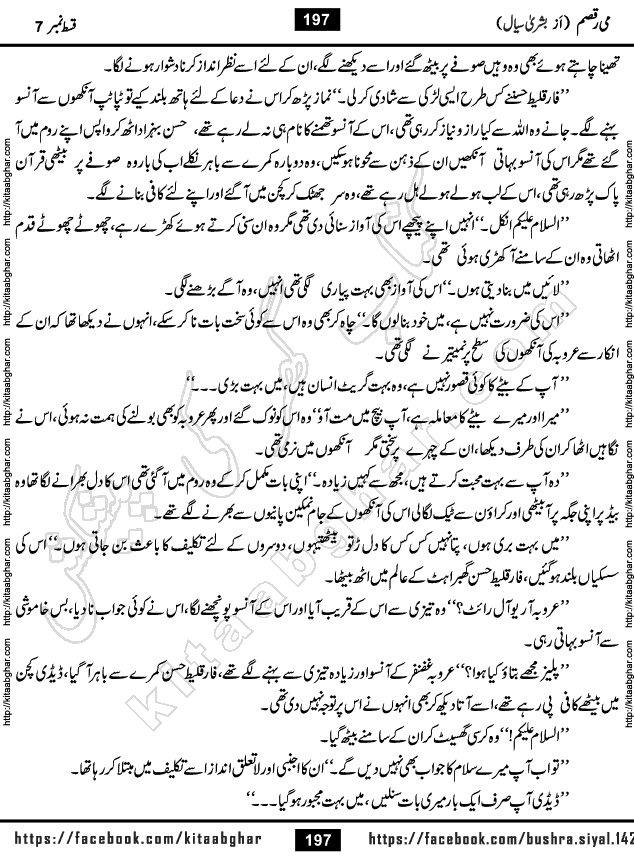 می رقصم (از بشریٰ سیال) 197 قسط نمبر 7
تھینا چاہتے ہوئے بھی وہ وہیں صوفے پر بیٹھ گئے اور اسے دیکھنے لگے، ان کے لئے اسے نظر انداز کرنا دشوار ہونے لگا۔
’’فارقلیط حسن نے کس طرح ایسی لڑکی سے شادی کر لی۔‘‘ نماز پڑھ کر اس نے دعا کے لئے ہاتھ بلند کیے تو ٹپا ٹپ آنکھوں سے آنسو
بہنے لگے۔ جانے وہ اللہ سے کیا راز و نیاز کر رہی تھی، اس کے آنسو تھمنے کا نام ہی نہ لے رہے تھے، حسن بہزاد اٹھ کر واپس اپنے روم میں آ
گئے تھے مگر اس کی آنسو بہاتی آنکھیں ان کے ذہن سے محو نا ہو سکیں، وہ دوبارہ کمرے سے باہر نکلے اب کی بار وہ صوفے پر بیٹھی قرآن
پاک پڑھ رہی تھی، اس کے لب ہولے ہولے ہل رہے تھے، وہ سر جھٹک کر کچن میں آ گئے اور اپنے لئے کافی بنانے لگے۔
’’السلام علیکم انکل۔‘‘ انہیں اپنے پیچھے اس کی آواز سنائی دی تھی مگر وہ ان سنی کرتے ہوئے کھڑے رہے، چھوٹے چھوٹے قدم
اٹھاتی وہ ان کے سامنے آ کھڑی ہوئی تھی۔
’’لائیں میں بنا دیتی ہوں۔‘‘ اس کی آواز بھی بہت پیاری لگی تھی انہیں، وہ آگے بڑھنے لگی۔
’’اس کی ضرورت نہیں ہے، میں خود بنا لوں گا۔‘‘ چاہ کر بھی وہ اس سے کوئی سخت بات نا کر سکے، انہوں نے دیکھا تھا کہ ان کے
انکار سے عروبہ کی آنکھوں کی سطح پر نمی تیرنے لگی تھی۔
’’آپ کے بیٹے کا کوئی قصور نہیں ہے، وہ بہت گریٹ انسان ہیں، میں بہت بری۔۔۔‘‘
’’میرا اور میرے بیٹے کا معاملہ ہے، آپ بیچ میں مت آؤ‘‘ وہ اس کو ٹوک گئے اور پھر عروبہ کو بھی بولنے کی ہمت نہ ہوئی، اس نے
نگاہیں اٹھا کر ان کی طرف دیکھا، ان کے چہرے پر سختی مگر آنکھوں میں نرمی تھی۔
’’وہ آپ سے بہت محبت کرتے ہیں، مجھ سے کہیں زیادہ۔‘‘ اپنی بات مکمل کر کے وہ روم میں آ گئی تھی اس کا دل بھر آنے لگا تھا وہ
بیڈ پر اپنی جگہ پر آ بیٹھی اور کراؤن سے ٹیک لگا لی اس کی آنکھوں کے جام نمکین پانیوں سے بھرنے لگے تھے۔
’’میں بہت بری ہوں، پتا نہیں کس کس کا دل توڑ بیٹھتی ہوں، دوسروں کے لئے تکلیف کا باعث بن جاتی ہوں۔‘‘ اس کی
سسکیاں بلند ہو گئیں، فارقلیط حسن گھبراہٹ کے عالم میں اٹھ بیٹھا۔
’’عروبہ آر یو آل رائٹ؟‘‘ وہ تیزی سے اس کے قریب آیا اور اس کے آنسو پونچھنے لگا، اس نے کوئی جواب نا دیا، بس خاموشی
سے آنسو بہاتی رہی۔
’’پلیز مجھے بتاؤ کیا ہوا؟‘‘ عروبہ غضنفر کے آنسو اور زیادہ تیزی سے بہنے لگے تھے، فارقلیط حسن کمرے سے باہر آ گیا، ڈیڈی کچن
میں بیٹھے کافی پی رہے تھے، اسے آتا دیکھ کر بھی انہوں نے اس پر توجہ نہیں دی تھی۔
’’السلام علیکم!‘‘ وہ کرسی گھسیٹ کر ان کے سامنے بیٹھ گیا۔
’’تو اب آپ میرے سلام کا جواب بھی نہیں دیں گے۔‘‘ ان کا اجنبی اور لاتعلق انداز اسے تکلیف میں مبتلا کر رہا تھا۔
’’ڈیڈی آپ صرف ایک بار میری بات سن لیں، میں بہت مجبور ہو گیا۔۔۔‘‘
https://facebook.com/kitaabghar 197 https://facebook.com/bushra.siyal.142
http://kitaabghar.com http://kitaabghar.com http://kitaabghar.com http://kitaabghar.com http://kitaabghar.com http://kitaabghar.com
http://kitaabghar.com http://kitaabghar.com http://kitaabghar.com http://kitaabghar.com http://kitaabghar.com http://kitaabghar.com
کتاب گھر کی پیشکش
kitaabghar.com